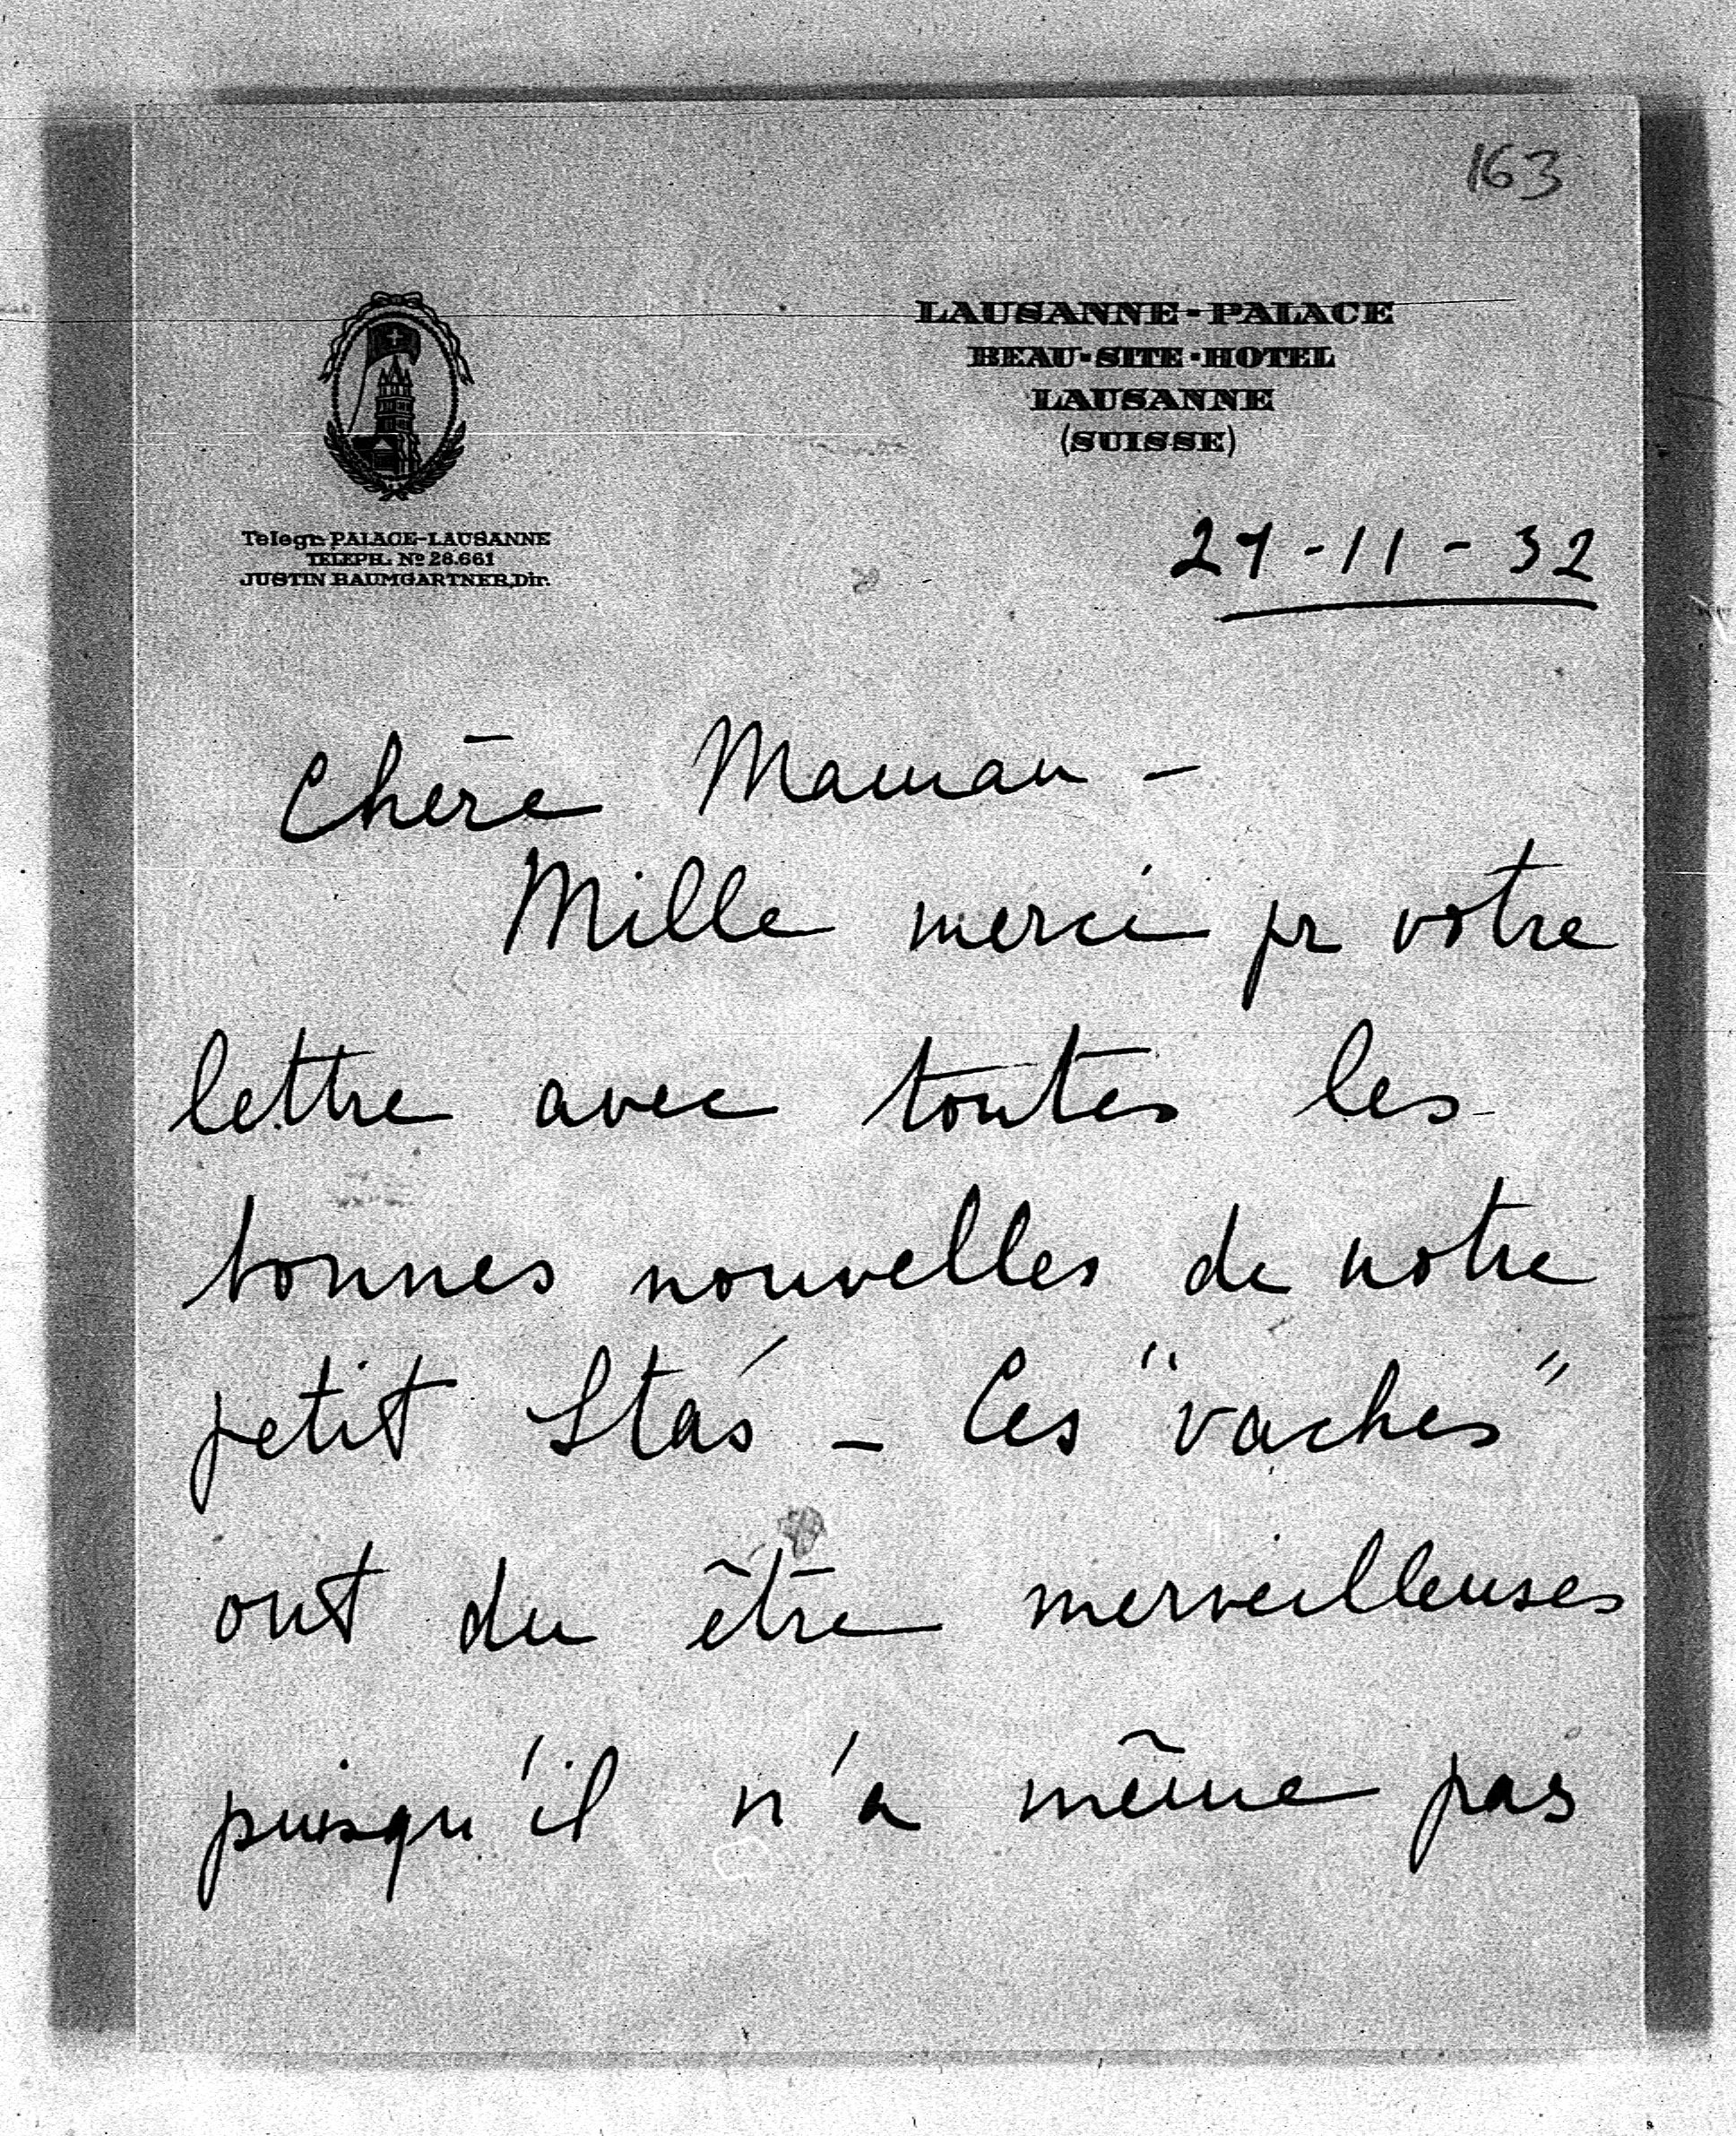 163
LAUSANNE-PALACE
BEAU-SITE-HOTEL
LAUSANNE
(SUISSE)
Telegr. PALACE-LAUSANNE
TELEPH. Nº 28.661
JUSTIN BAUMGARTNER, Dir.
27-11-32
Chère Maman -
Mille merci pr votre
lettre avec toutes les
bonnes nouvelles de notre
petit Staś - Ces "vaches"
ont du être merveilleuses
puisqu'il n'a même pas